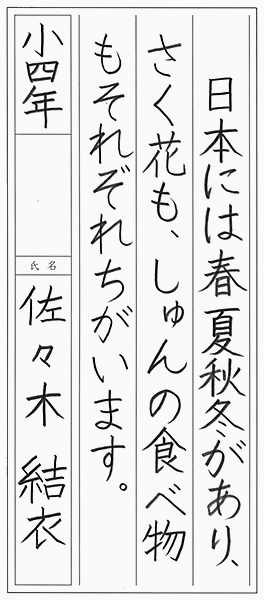 日本には春夏秋冬があり、
さく花も、しゅんの食べ物
もそれぞれちがいます。
小四年
氏名
佐々木 結衣